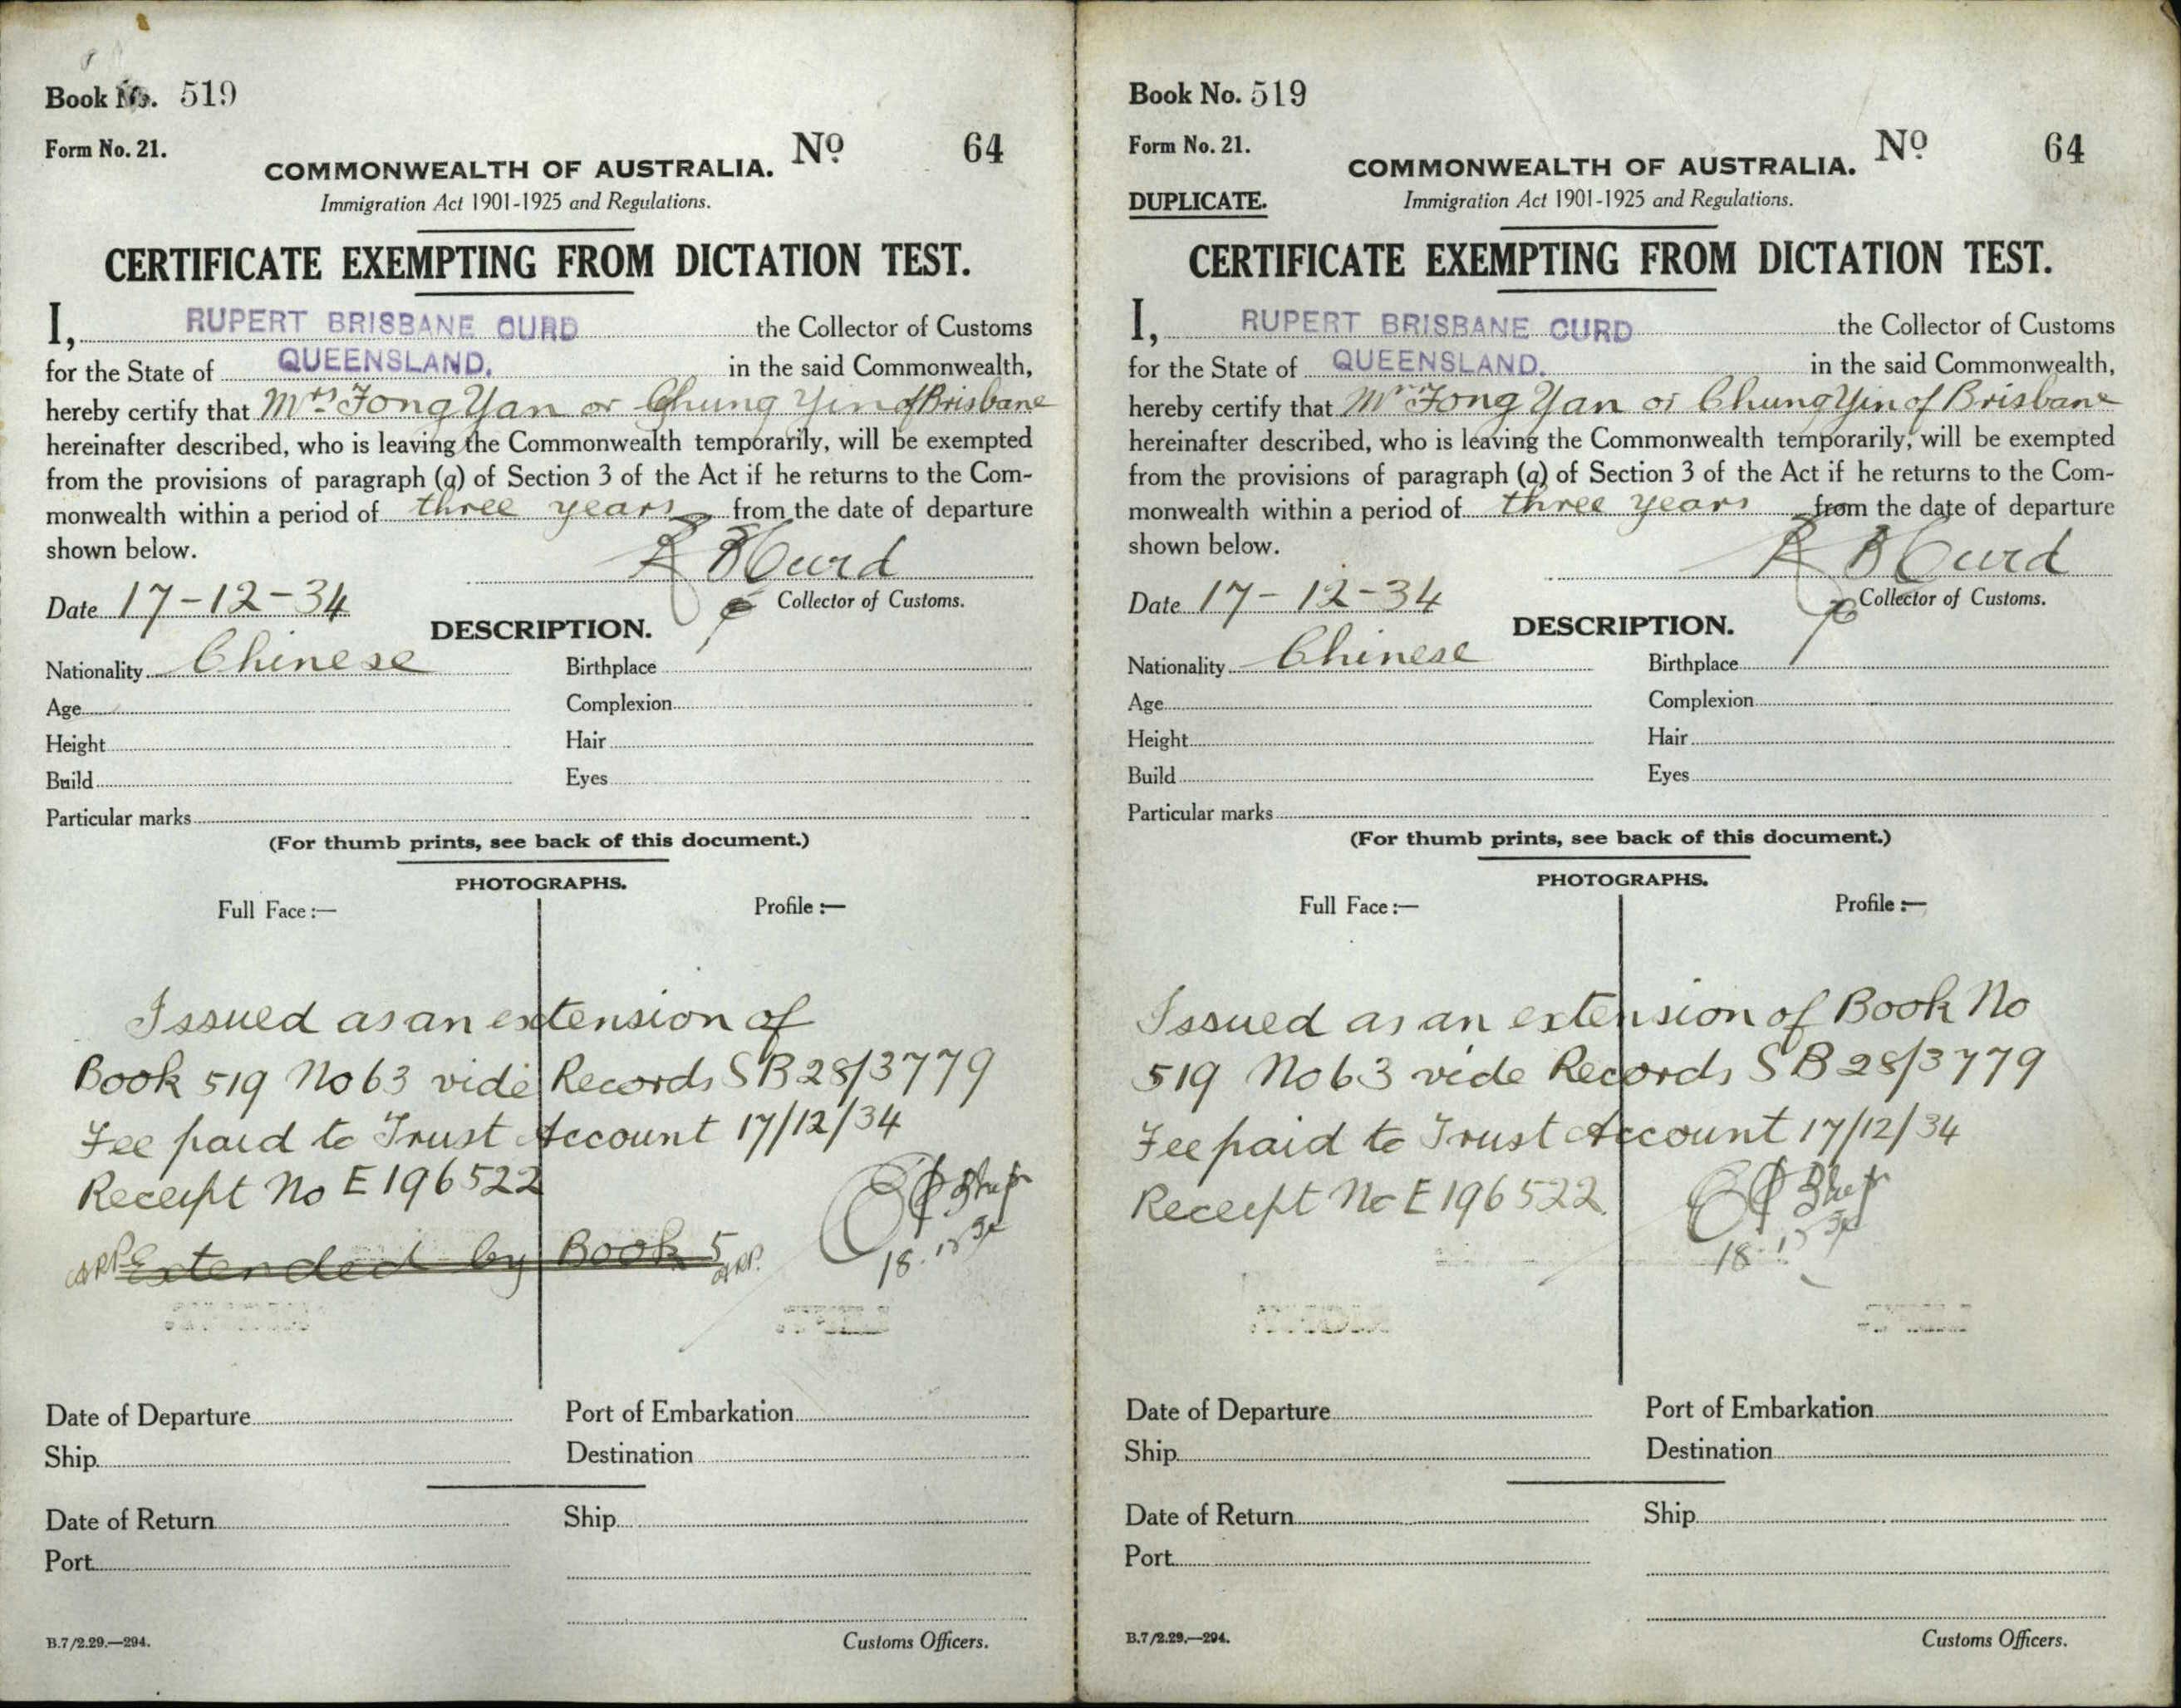 Book No. 519
Form No. 21.
No 64
COMMONWEALTH OF AUSTRALIA.
Immigration Act 1901-1925 and Regulations.
CERTIFICATE EXEMPTING FROM DICTATION TEST.
I, RUPERT BRISBANE CURD the Collector of Customs
for the State of QUEENSLAND. in the said Commonwealth,
hereby certify that Mrs Fong Yan or Chung Yin of Brisbane
hereinafter described, who is leaving the Commonwealth temporarily, will be exempted
from the provisions of paragraph (a) of Section 3 of the Act if he returns to the Com-
monwealth within a period of three years from the date of departure
shown below.
R B Curd
Date 17-12-34
Collector of Customs.
DESCRIPTION.
Nationality Chinese Birthplace
Age Complexion
Height Hair
Build Eyes
Particular marks
(For thumb prints, see back of this document.)
PHOTOGRAPHS.
Full Face :— Profile :—
Issued as an extension of
Book 519 No 63 vide Records SB28/3779
Fee paid to Trust Account 17/12/34
Receipt No E196522
Extended by Book 5
ARP. 18.12.34
Date of Departure Port of Embarkation
Ship Destination
Date of Return Ship
Port
B.7/2.29.—294. Customs Officers.
Book No. 519
Form No. 21.
No 64
COMMONWEALTH OF AUSTRALIA.
DUPLICATE. Immigration Act 1901-1925 and Regulations.
CERTIFICATE EXEMPTING FROM DICTATION TEST.
I, RUPERT BRISBANE CURD the Collector of Customs
for the State of QUEENSLAND. in the said Commonwealth,
hereby certify that Mrs Fong Yan or Chung Yin of Brisbane
hereinafter described, who is leaving the Commonwealth temporarily, will be exempted
from the provisions of paragraph (a) of Section 3 of the Act if he returns to the Com-
monwealth within a period of three years from the date of departure
shown below.
R B Curd
Date 17-12-34
Collector of Customs.
DESCRIPTION.
Nationality Chinese Birthplace
Age Complexion
Height Hair
Build Eyes
Particular marks
(For thumb prints, see back of this document.)
PHOTOGRAPHS.
Full Face :— Profile :—
Issued as an extension of Book No
519 No 63 vide Records SB28/3779
Fee paid to Trust Account 17/12/34
Receipt No E196522.
Date of Departure Port of Embarkation
Ship Destination
Date of Return Ship
Port
B.7/2.29.—294. Customs Officers.